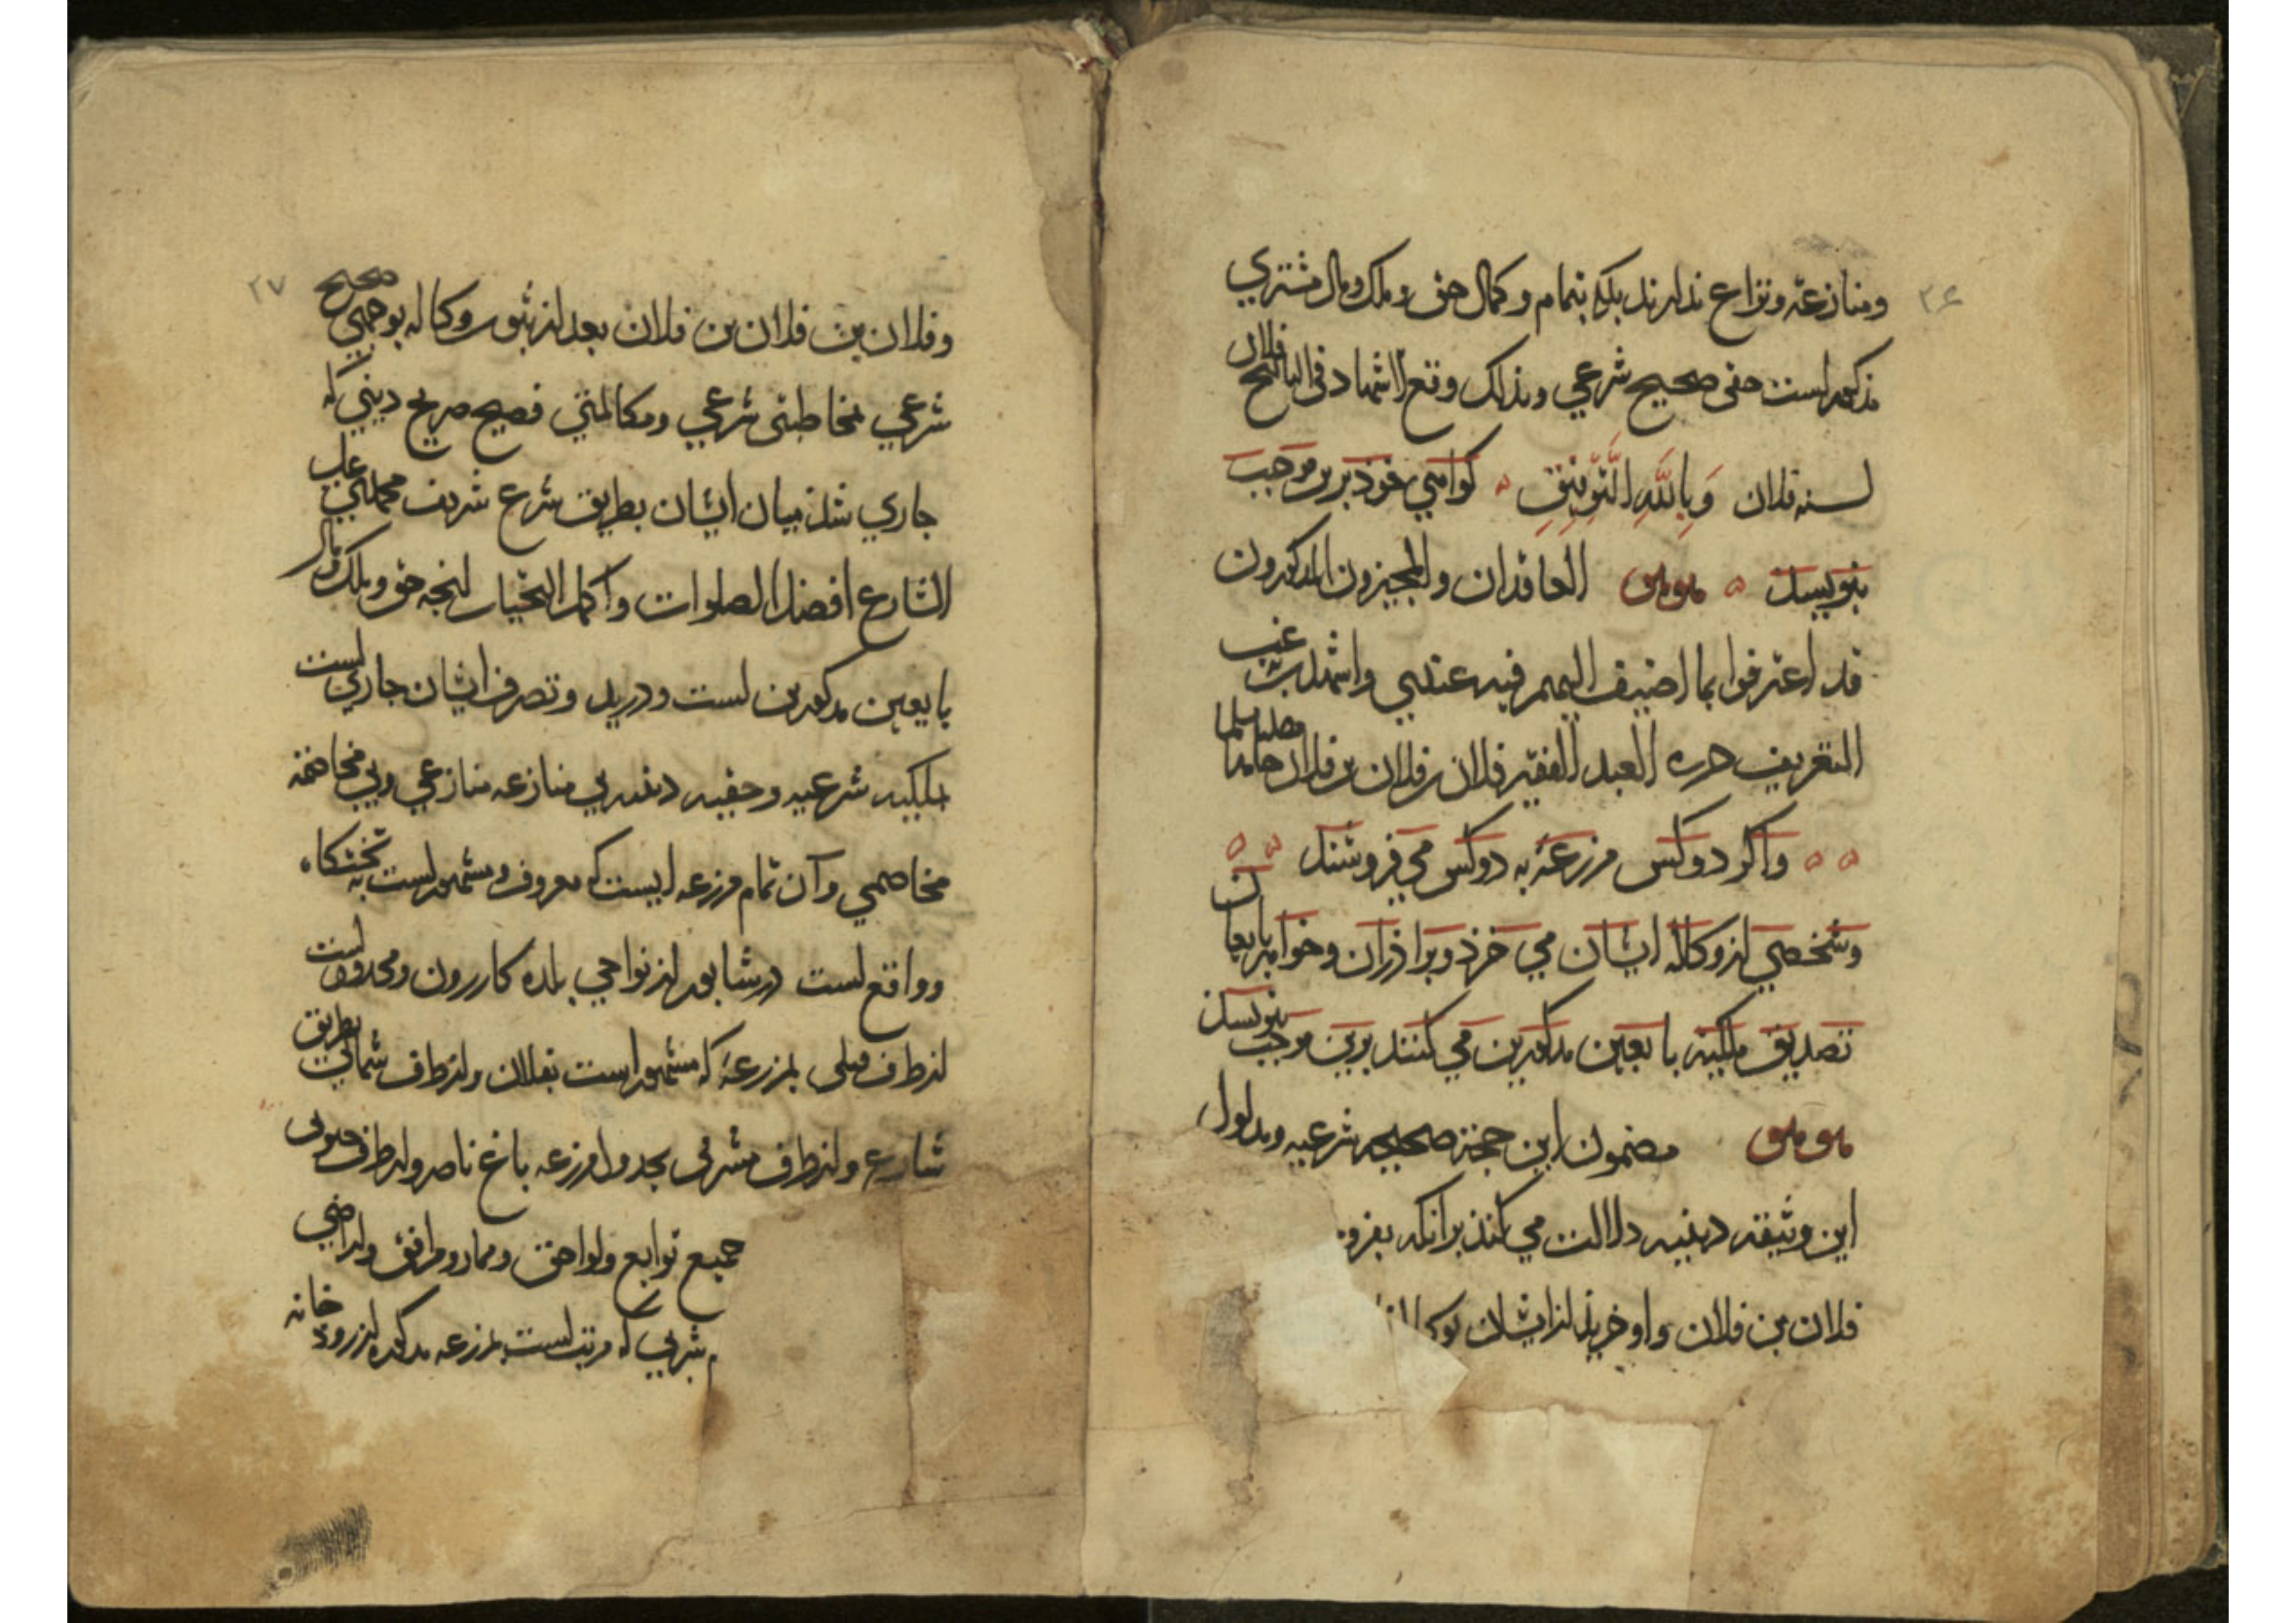 ۲۶
ومنازعة ونزاع ندارند بلکه بتمام وکمال حق وملک ومال مشتري
مذکور است حقی صحیح شرعي وبذلک وقع الاشهاد في التاریخ فلان
لسنه فلان وَبِاللّهِ التَّوفِیقِ کواهي خوذ برین موجب
بنویسد العاقدان والمجیزون المذکورون
قد اعترفوا بما اضیف الیهم فیه عندي واشهدت غب
التعریف حرره العبد الفقیر فلان بن فلان بن فلان حامدا مصلیا مسلما
واکر دوکس مزرعهٔ به دوکس مي فروشند
وشخصي از وکاله ایشان مي خرد وبراذران وخواهر بایعان
تصدیق ملکیه بایعین مذکورین مي کنند برین موجب بنویسد
مضمون این حجة صحیحه شرعیه ومدلول
این وثیقه دینیه دلالت مي کند برانکه بفرو
فلان بن فلان واو خرید از ایشان
۲۷
وفلان بن فلان بن فلان بعد از ثبوت وکاله بوجهي صحیح
شرعي مخاطبتی شرعي ومکالمتي فصیح صریح دیني که
جاري شد میان ایشان بطریق شرع شریف محمدي علي
الشارع افضل الصلوات واکمل التحیات انجه حق وملک ومال
بایعین مذکورین است ودر ید وتصرف ایشان جاري است
بملکیه شرعیه وحقیه دینیه بي منازعه منازعي وبي مخاصمه
مخاصمي وآن تمام مزرعه ایست که معروف ومشهور است به تختکاه
وواقع است در شابور از نواحي بلده کازرون ومحدود است
از طرف قبلی بمزرعهٔ که مشهور است بفلان واز طرف شمالي بطریق
شارع واز طرف مشرقی بجدول مزرعه باغ ناصر واز طرف جنوبی
جمیع توابع ولواحق وممار ومرافق واراضي
شربي که مرتب است بمزرعه مذکوره از روذ خانه